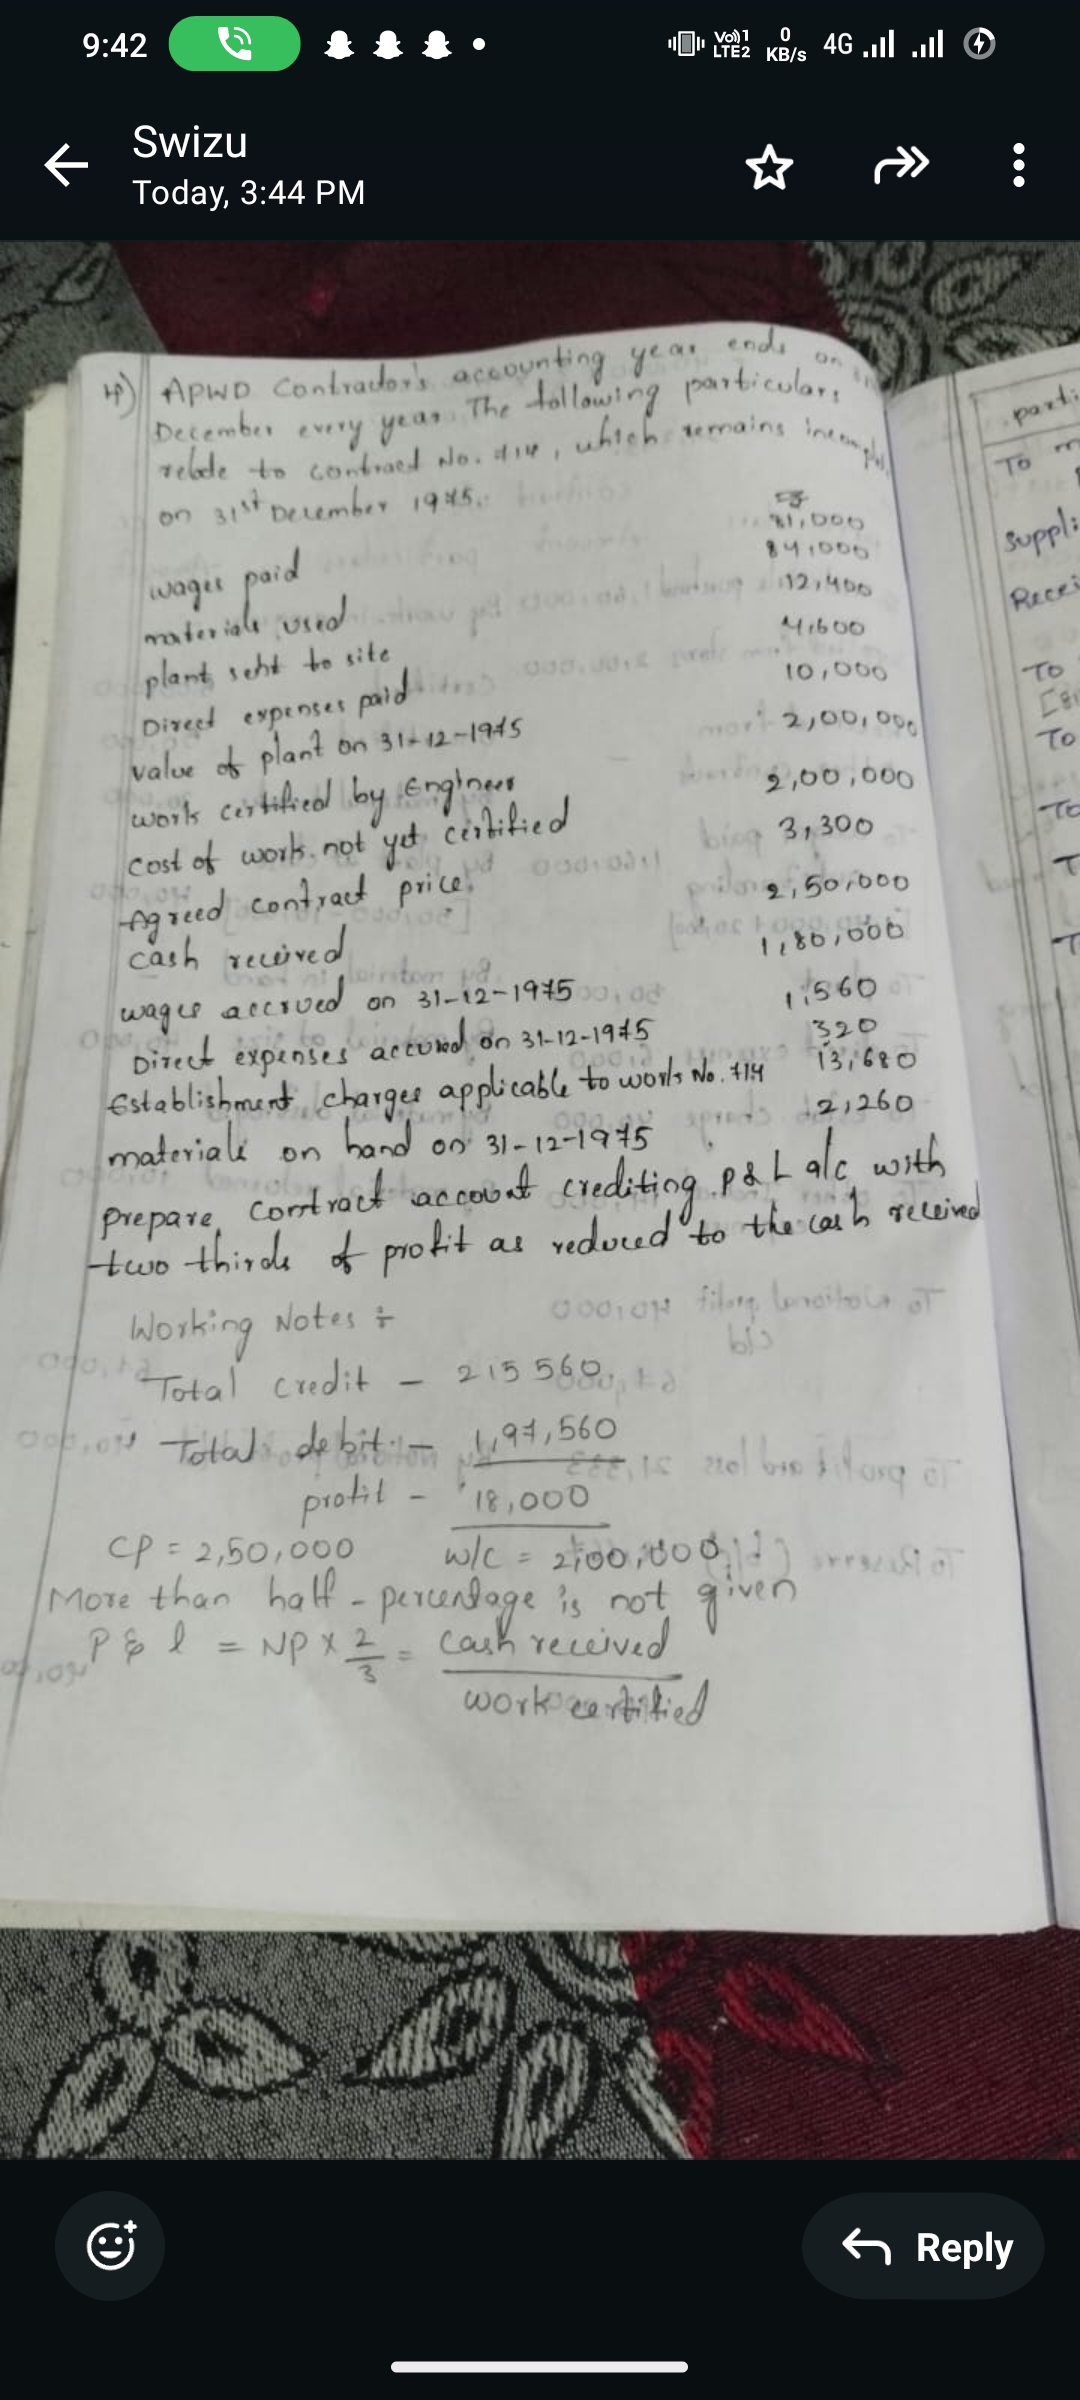 9:42
Vo)) 1 LTE2
0 KB/s
4G
Swizu
Today, 3:44 PM
4) APWD Contractor's accounting year ends on
December every year. The following particulars
relate to contract No. 714, which remains
on 31st December 1975.
wages paid 81,000
materials used 84,000
plant sent to site 12,400
Direct expenses paid 4,600
value of plant on 31-12-1975 10,000
work certified by Engineer 2,00,000
2,00,000
cost of work not yet certified 3,300
Agreed contract price. 2,50,000
cash received 1,80,000
wages accrued on 31-12-1975 1,560
Direct expenses accured on 31-12-1975 320
Establishment charges applicable to work No. 714 13,680
materials on hand on 31-12-1975 2,260
prepare contract account crediting P & L a/c with
two thirds of profit as reduced to the cash received
Working Notes ÷
Total credit - 215 560
Total debit - 1,97,560
profit - 18,000
CP = 2,50,000 W/C = 2,00,000
More than half - percentage is not given
P & l = NP x 2/3 = cash received
work certified
parti
To m
Suppli
Recei
To
To
To
T
T
Reply